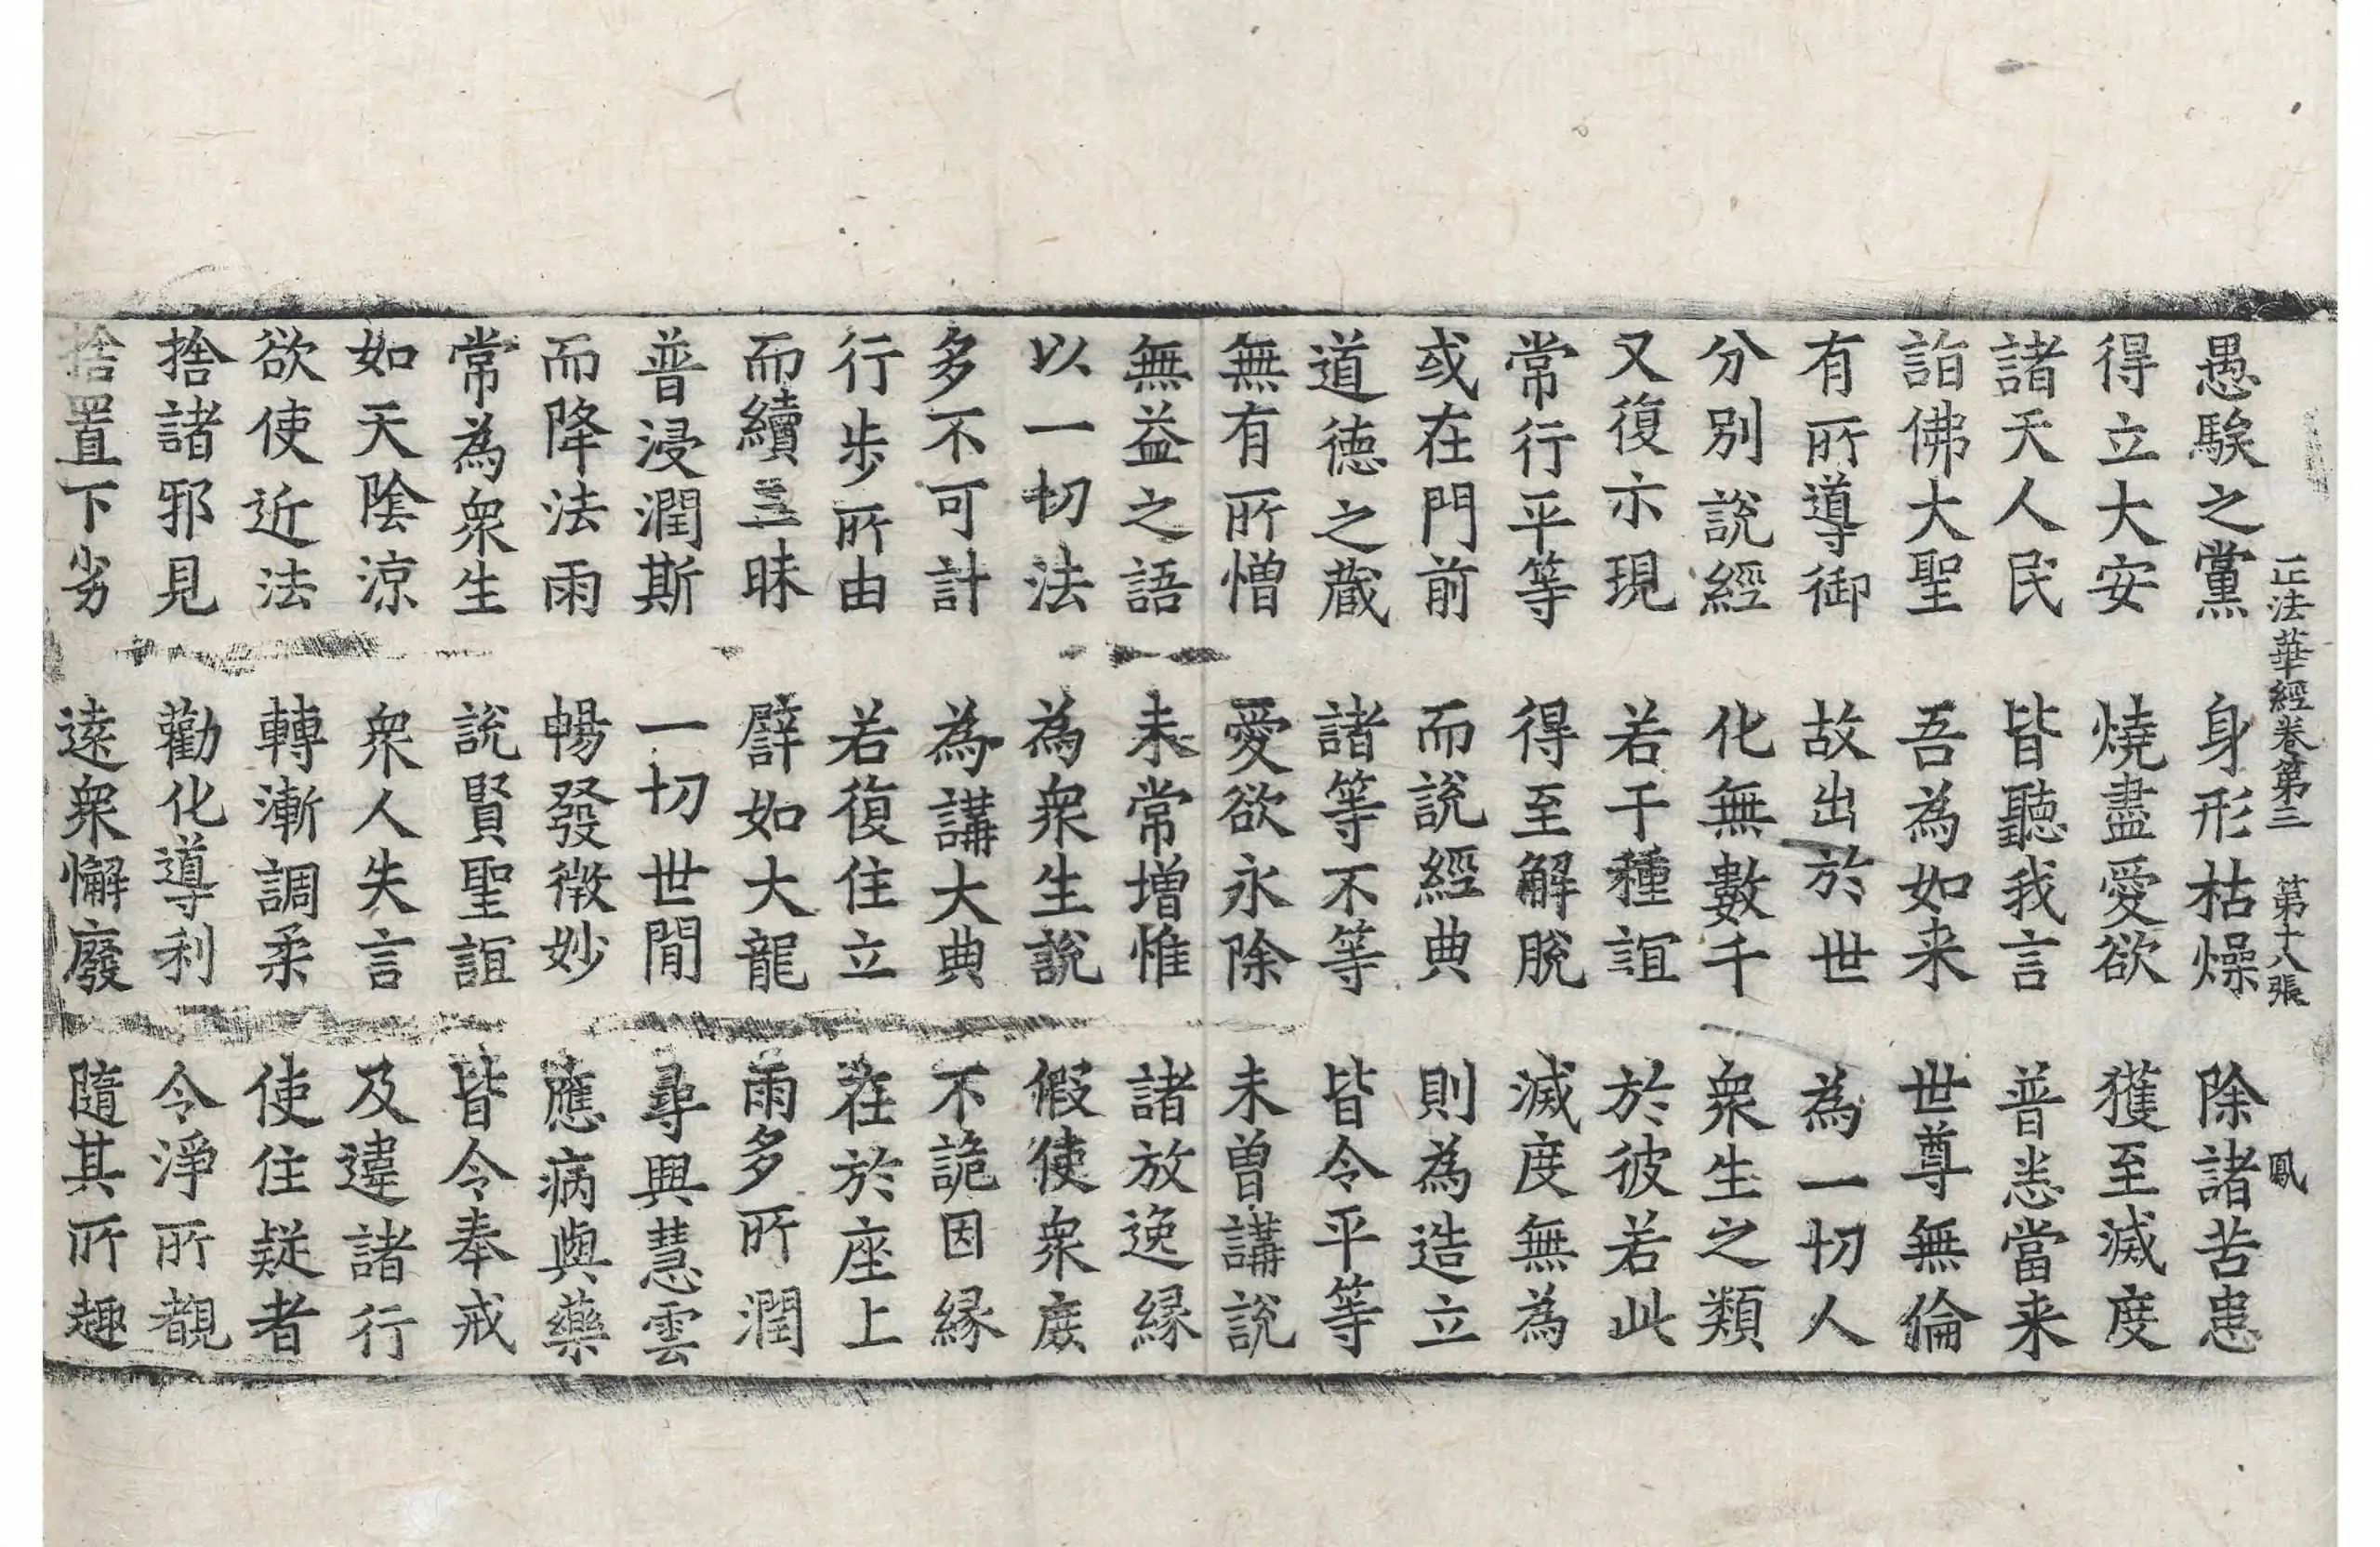 正法華經卷第三 第十八張 鳳
愚騃之黨 身形枯燥 除諸苦患
得立大安 燒盡愛欲 獲至滅度
諸天人民 皆聽我言 普悉當来
詣佛大聖 吾為如来 世尊無倫
有所導御 故出於世 為一切人
分別說經 化無數千 衆生之類
又復示現 若干種誼 於彼若此
常行平等 得至解脫 滅度無為
或在門前 而說經典 則為造立
道德之蔵 諸等不等 皆令平等
無有所憎 愛欲永除 未曽講說
無益之語 未常增惟 諸放逸縁
以一切法 為衆生說 假使衆庻
多不可計 為講大典 不詭因縁
行步所由 若復住立 在於座上
而續三昧 譬如大龍 雨多所潤
普浸潤斯 一切世間 尋興慧雲
而降法雨 暢發微妙 應病與藥
常為衆生 說賢聖誼 皆令奉戒
如天陰涼 衆人失言 及違諸行
欲使近法 轉漸調柔 使住疑者
捨諸邪見 勸化導利 令淨所覩
捨置下劣 逺衆懈廢 隨其所趣